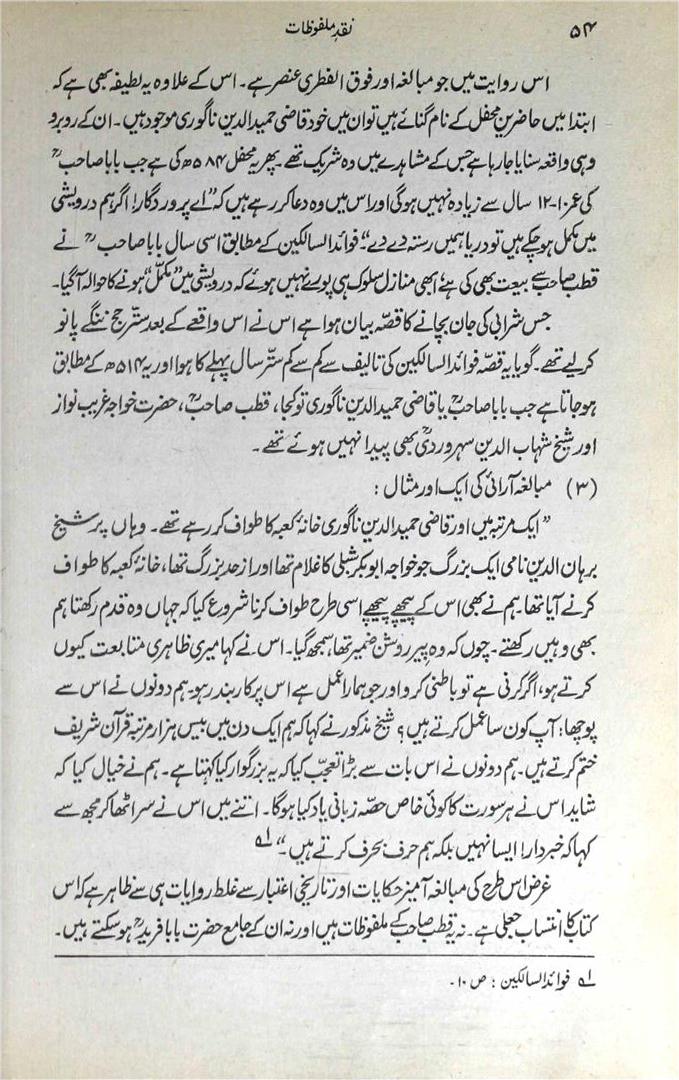 ۵۴
نقدِ ملفوظات
اس روایت میں جو مبالغہ اور فوق الفطری عنصر ہے۔ اس کے علاوہ یہ لطیفہ بھی ہے کہ
ابتدا میں حاضرینِ محفل کے نام گنائے ہیں تو ان میں خود قاضی حمید الدین ناگوری موجود ہیں۔ ان کے روبرو
وہی واقعہ سنایا جا رہا ہے جس کے مشاہدے میں وہ شریک تھے۔ پھر یہ محفل ۵۸۴ھ کی ہے جب بابا صاحبؒ
کی عمر ۱۰-۱۲ سال سے زیادہ نہیں ہوگی اور اس میں وہ دعا کر رہے ہیں کہ "اے پروردگار! اگر ہم درویشی
میں مکمل ہو چکے ہیں تو دریا ہمیں رستہ دے دے"۔ فوائد السالکین کے مطابق اسی سال بابا صاحبؒ نے
قطب صاحبؒ سے بیعت بھی کی ہے، ابھی منازلِ سلوک ہی پورے نہیں ہوئے کہ درویشی میں "مکمّل" ہونے کا حوالہ آگیا۔
جس شرابی کی جان بچانے کا قصّہ بیان ہوا ہے اس نے اس واقعے کے بعد ستّر حج ننگے پانو
کر لیے تھے۔ گویا یہ قصّہ فوائد السالکین کی تالیف سے کم سے کم ستّر سال پہلے کا ہوا اور یہ ۵۱۴ھ کے مطابق
ہو جاتا ہے جب بابا صاحبؒ یا قاضی حمید الدین ناگوری تو کجا، قطب صاحبؒ، حضرت خواجہ غریب نواز
اور شیخ شہاب الدین سہروردیؒ بھی پیدا نہیں ہوئے تھے۔
(۳) مبالغہ آرائی کی ایک اور مثال :
"ایک مرتبہ میں اور قاضی حمید الدین ناگوری خانۂ کعبہ کا طواف کر رہے تھے۔ وہاں پر شیخ
برہان الدین نامی ایک بزرگ جو خواجہ ابوبکر شبلی کا غلام تھا اور از حد بزرگ تھا، خانۂ کعبہ کا طواف
کرنے آیا تھا۔ ہم نے بھی اس کے پیچھے پیچھے اسی طرح طواف کرنا شروع کیا کہ جہاں وہ قدم رکھتا ہم
بھی وہیں رکھتے۔ چوں کہ وہ پیر روشن ضمیر تھا، سمجھ گیا۔ اس نے کہا میری ظاہری متابعت کیوں
کرتے ہو، اگر کرنی ہے تو باطنی کرو اور جو ہمارا عمل ہے اس پر کاربند رہو۔ ہم دونوں نے اس سے
پوچھا : آپ کون سا عمل کرتے ہیں؟ شیخ مذکور نے کہا کہ ہم ایک دن میں بیس ہزار مرتبہ قرآن شریف
ختم کرتے ہیں۔ ہم دونوں نے اس بات سے بڑا تعجّب کیا کہ یہ بزرگوار کیا کہتا ہے۔ ہم نے خیال کیا کہ
شاید اس نے ہر سورت کا کوئی خاص حصّہ زبانی یاد کیا ہوگا۔ اتنے میں اس نے سر اٹھا کر مجھ سے
کہا کہ خبردار! ایسا نہیں بلکہ ہم حرف بحرف کرتے ہیں۔" ؎۱
غرض اس طرح کی مبالغہ آمیز حکایات اور تاریخی اعتبار سے غلط روایات ہی سے ظاہر ہے کہ اس
کتاب کا انتساب جعلی ہے۔ نہ یہ قطب صاحبؒ کے ملفوظات ہیں اور نہ ان کے جامع حضرت بابا فریدؒ ہو سکتے ہیں۔
؎۱ فوائد السالکین : ص ۱۰۔